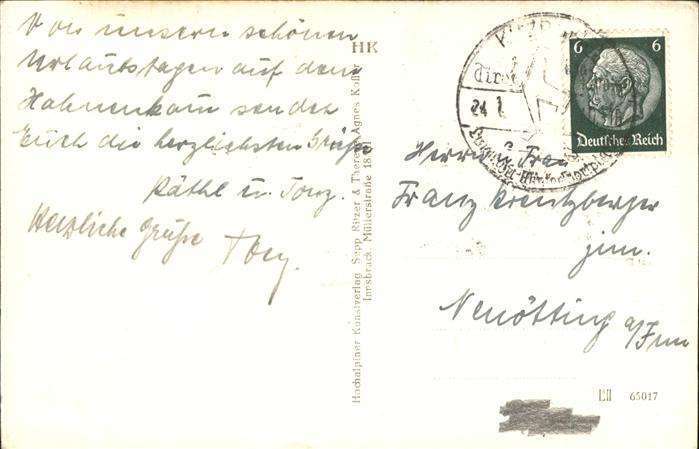 Von unsern schönen
Urlaubstagen auf dem
Hahnenkam senden
Euch die herzlichsten Grüße
Käthl u. Tony.
Herzliche Grüße Tony.
HK
Hochalpiner Kunstverlag Sepp Ritzer & Therese Agnes Kofler
Innsbruck, Müllerstraße 18
6 6
Deutsches Reich
Tirol
24. 1.
Herrn & Frau
Franz Kreutzberger
jun.
Neuötting a/Inn
65017